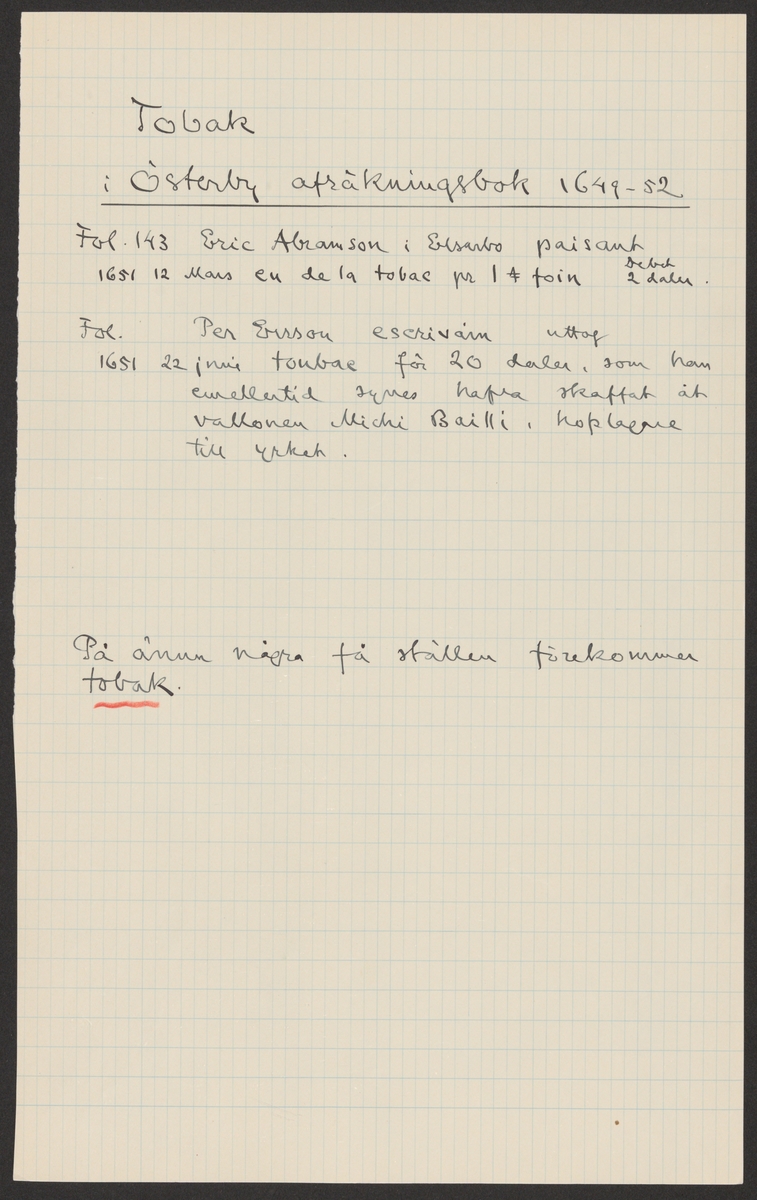 Tobak
i Österby afräkningsbok 1649-52
Fol. 143 Eric Abramson i Elsarbo paisant
1651 12 Mars en de la tobac pr 1 ℔ foin Debet 2 daler.
Fol. Per Ersson escrivám uttog
1651 22 juni toubac för 20 daler, som han
emellertid synes hafva skaffat åt
vallonen Michi Bailli, hoplagare
till yrket.
På ännu några få ställen förekommer
tobak.